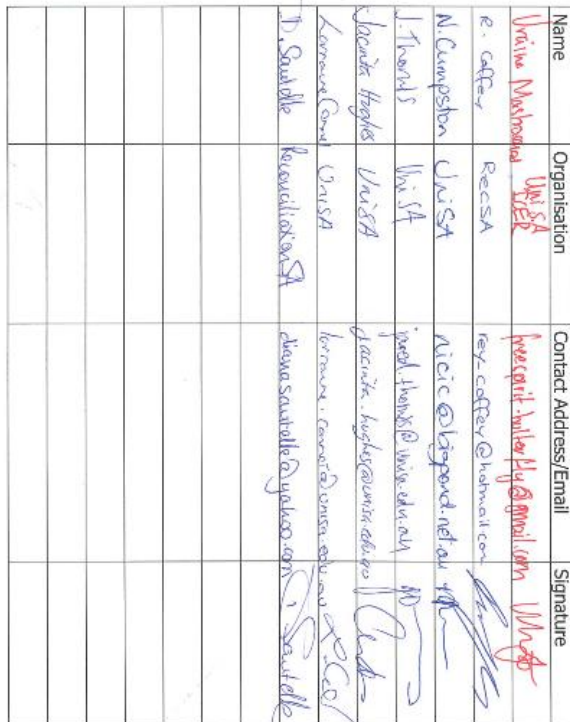 Name Organisation Contact Address/Email Signature
UniSA ICER freespirit.butterfly@gmail.com
R. Coffey RecSA rey_coffey@hotmail.com
N. Cumpston UniSA nicic@bigpond.net.au
J. Thomas UniSA jared.thomas@unisa.edu.au
Jacinta Hughes UniSA jacinta.hughes@unisa.edu.au
Lorraine UniSA
D. Sautelle Reconciliation SA dianasautelle@yahoo.com D Sautelle